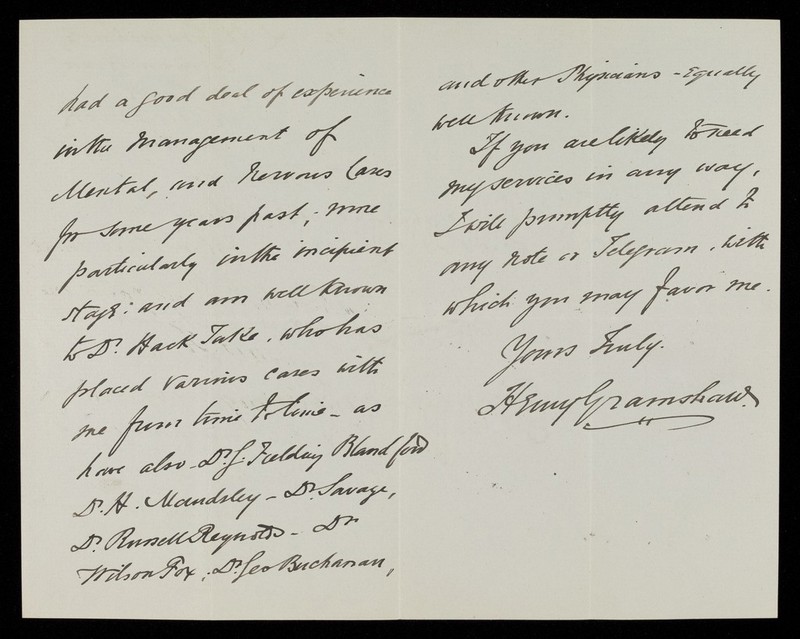 had a good deal of experience
in the management of
Mental, and Nervous Cases
for some years past; more
particularly in the incipient
stage: and am well known
to Dr. Hack Tuke, who has
placed various cases with
me from time to time - as
have also - Dr. G. Fielding Blandford
Dr. H. Maudsley - Dr. Savage,
Dr. Russell Reynolds - Dr
Wilson Fox; Dr. Geo Buchanan,
and other Physicians - Equally
well known.
If you are likely to need
my services in any way,
I will promptly attend to
any note or Telegram, with
which you may favor me.
Yours Truly.
Henry Gramshaw.